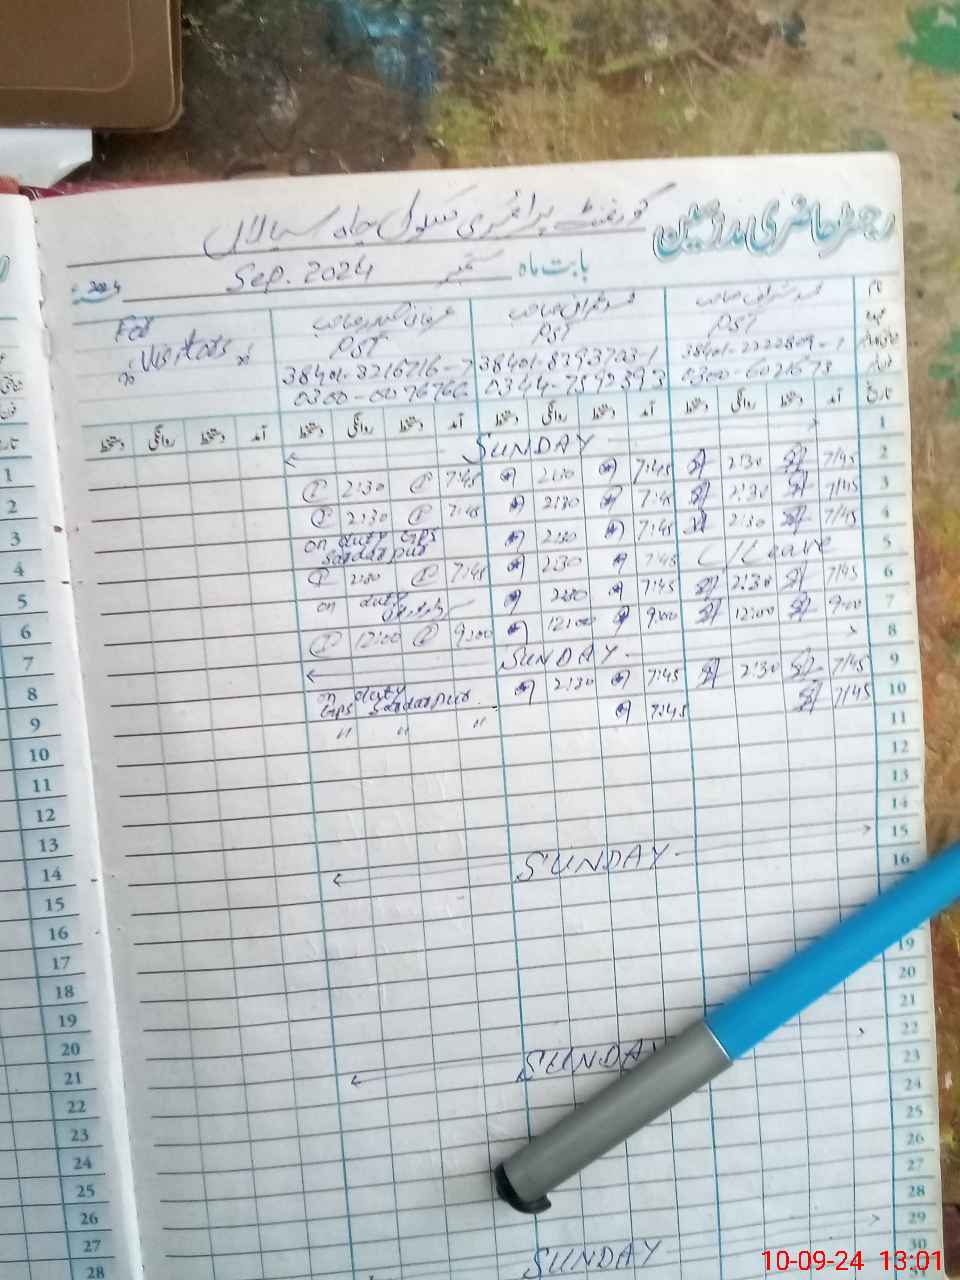 رجسٹر حاضری مدرسین
گورنمنٹ پرائمری سکول چاہ سیالاں
بابت ماہ ستمبر Sep. 2024 2024
نام
For Visitors
PST PST PST
38401-8393703-1
0344-7592393 0300-6021673
تاریخ
آمد دستخط روانگی دستخط آمد دستخط روانگی دستخط آمد دستخط روانگی دستخط آمد دستخط روانگی دستخط
1 SUNDAY
2 7/45 2:30 7:45 2:30 7:45 2:30
3 7/45 2:30 7:45 2:30 7:45 2:30
4 7/45 2:30 7:45 2:30 on duty GPS Saidarpur
5 C/Leave 7:45 2:30 7:45 2:30
6 7/45 2:30 7:45 2:30 on duty
7 9:00 12:00 9:00 12:00 9:00 12:00
8 SUNDAY
9 7/45 2:30 7:45 2:30 on duty GPS Saidarpur
10 7/45 7:45 " " "
11
12
13
14
15 SUNDAY
16
19
20
21
22 SUNDAY
23
24
25
26
27
28
29 SUNDAY
30
31
1
2
3
4
5
6
7
8
9
10
11
12
13
14
15
16
17
18
19
20
21
22
23
24
25
26
27
28
10-09-24 13:01